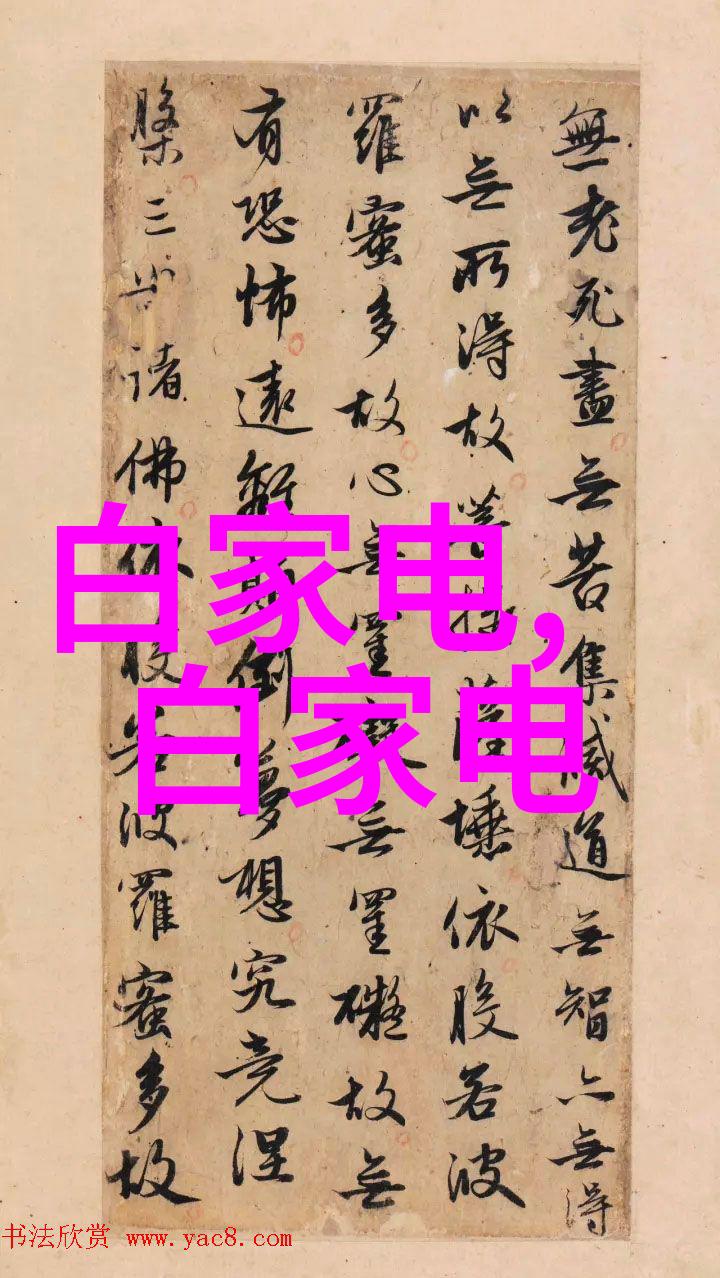 無老死盡無苦集滅道無智亦無得
以無所得故菩提薩埵依般若波
羅蜜多故心無罣礙無罣礙故無
有恐怖遠離顛倒夢想究竟涅
槃三世諸佛依般若波羅蜜多故
白家电,
白家电
书法欣赏 www.yac8.com